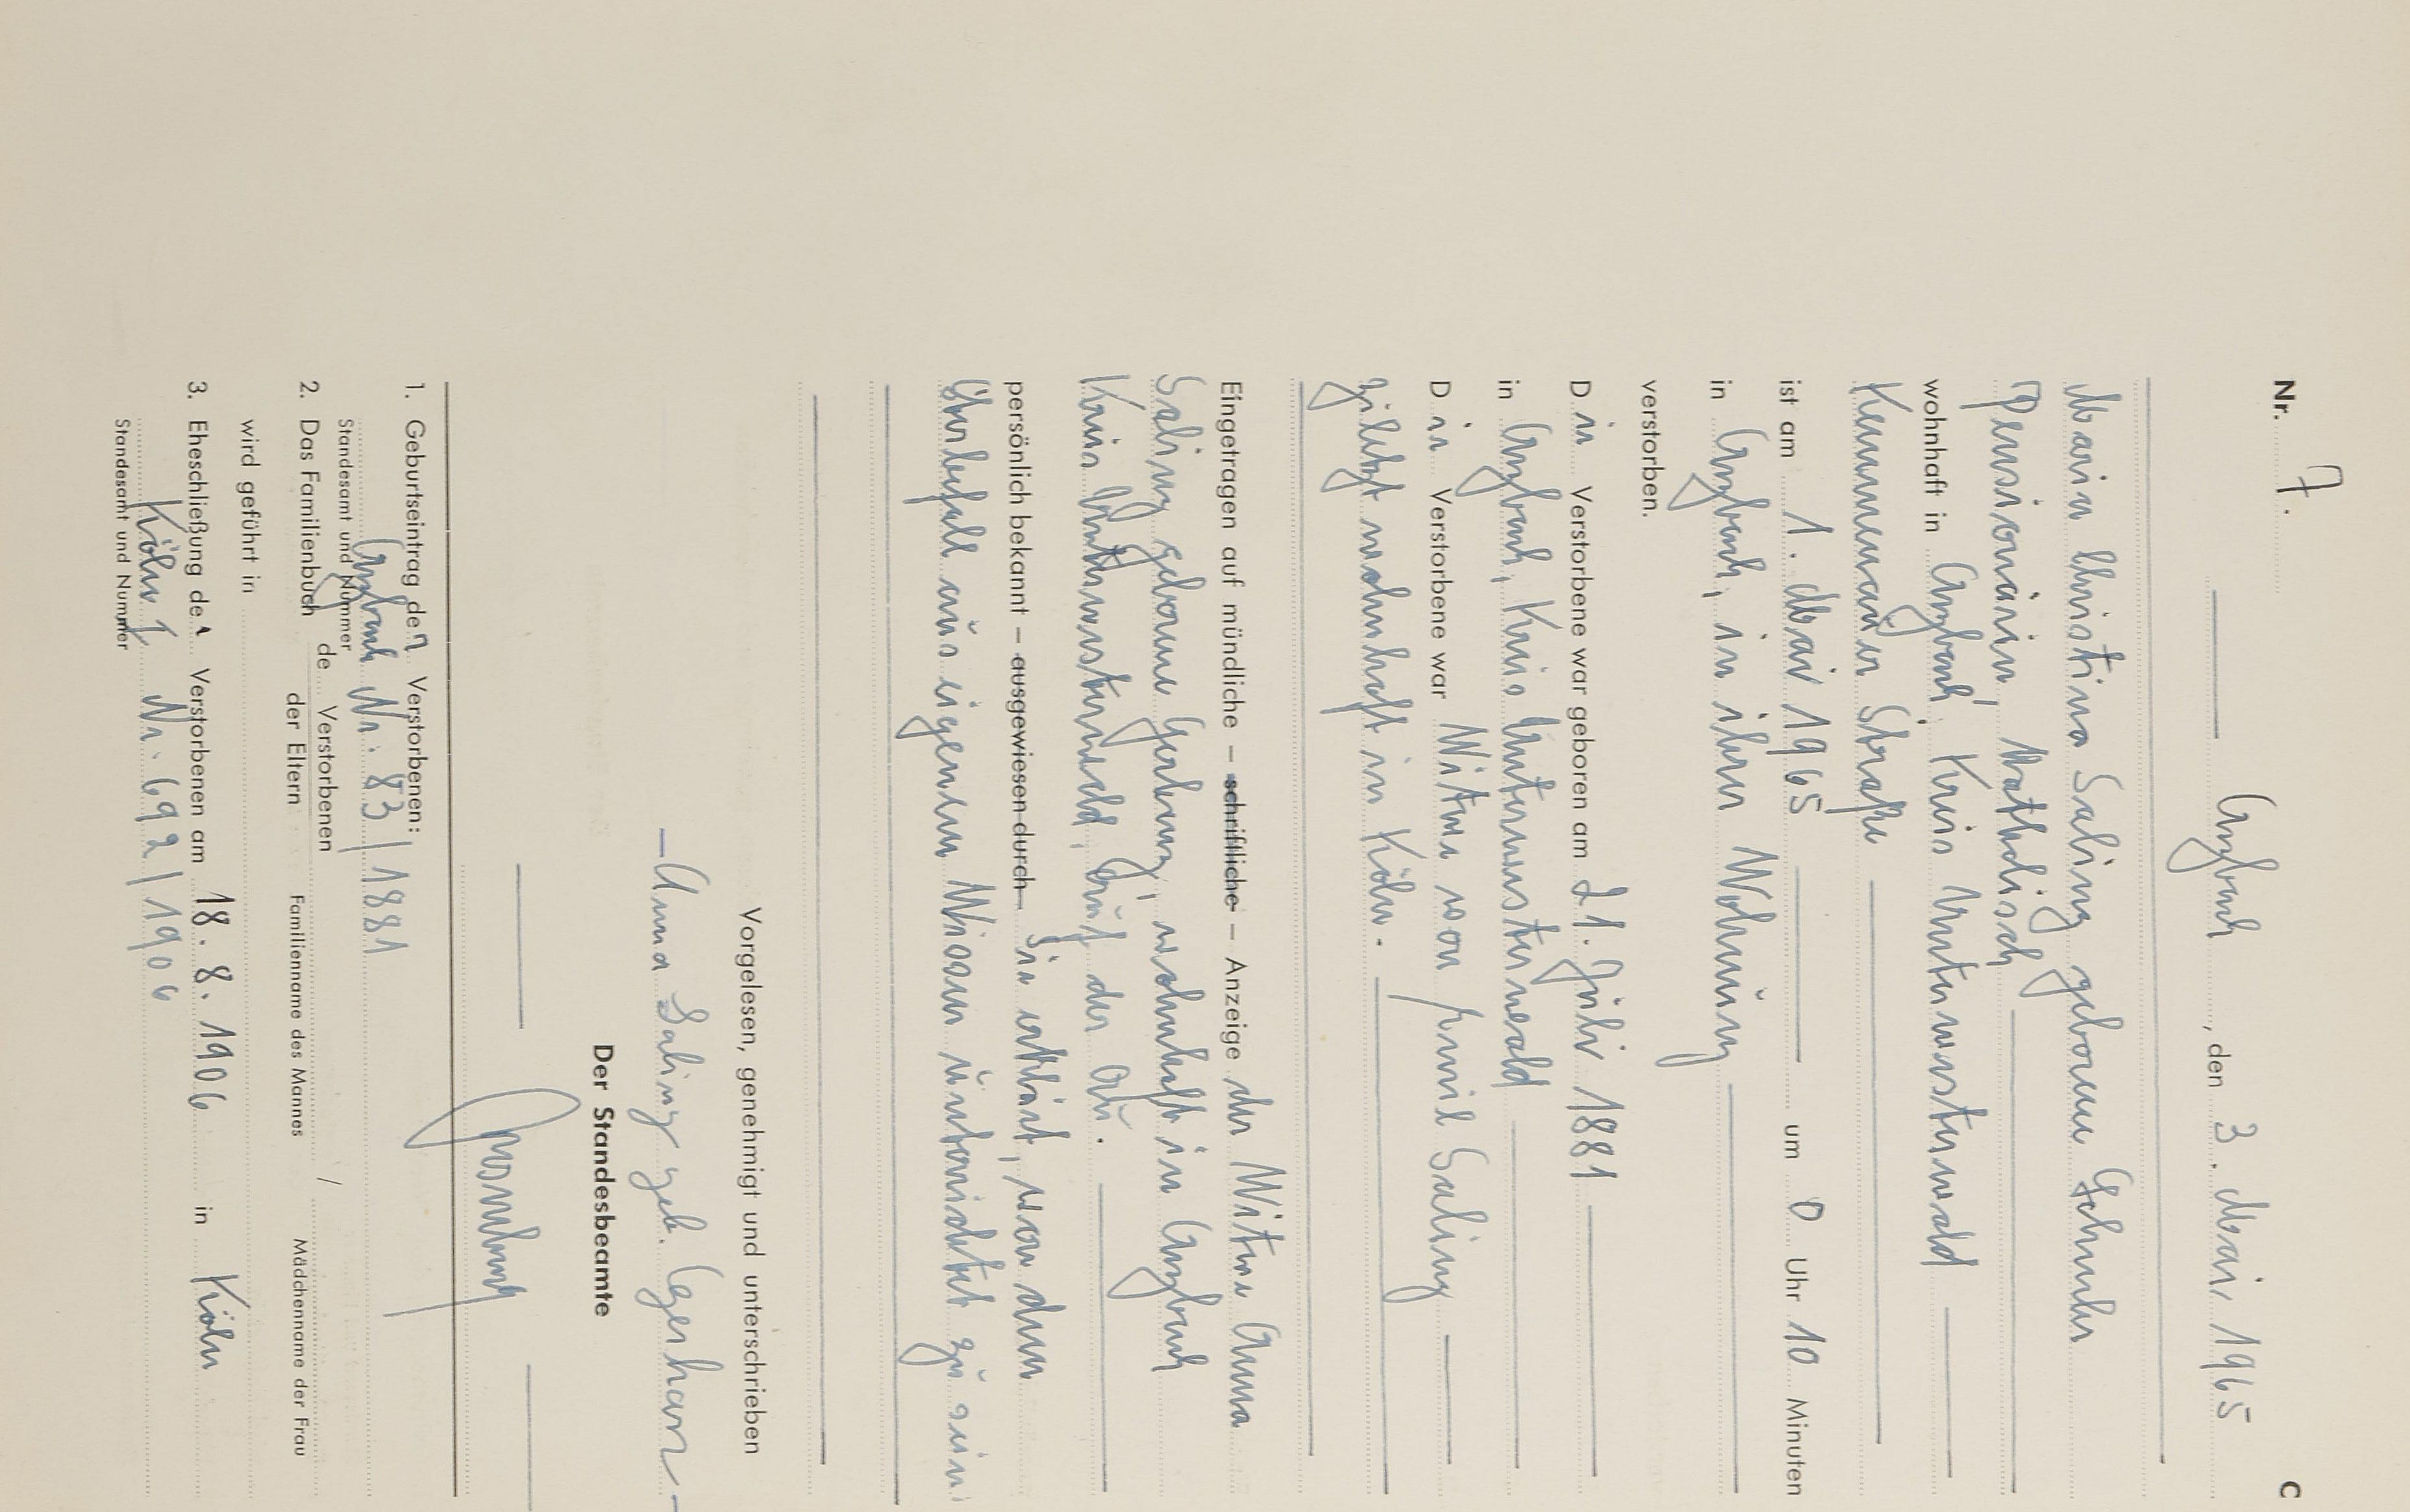 Nr. 7. C
Anzbach, den 3. Mai 1965
Maria Christina Saling geborene Schuster
Pensionärin, katholisch
wohnhaft in Anzbach, Kreis Unterwesterwald
Straße
ist am 1. Mai 1965 um 0 Uhr 10 Minuten
in Anzbach, in ihrer Wohnung
verstorben.
Die Verstorbene war geboren am 21. Juli 1881
in Anzbach, Kreis Unterwesterwald
Die Verstorbene war Witwe von Emil Saling
zuletzt wohnhaft in Köln.
Eingetragen auf mündliche – schriftliche – Anzeige der Witwe Anna
Saling geborene Gerharz, wohnhaft in Anzbach
Kreis Unterwesterwald,
persönlich bekannt – ausgewiesen durch Sie erklärt, von dem
Sterbefall aus eigenem Wissen unterrichtet zu sein
Vorgelesen, genehmigt und unterschrieben
Anna Saling geb. Gerharz
Der Standesbeamte
1. Geburtseintrag der Verstorbenen:
Anzbach Nr. 83 / 1881
Standesamt und Nummer
2. Das Familienbuch de Verstorbenen
der Eltern Familienname des Mannes / Mädchenname der Frau
wird geführt in
3. Eheschließung der Verstorbenen am 18. 8. 1906 in Köln
Köln I Nr. 692 / 1906
Standesamt und Nummer